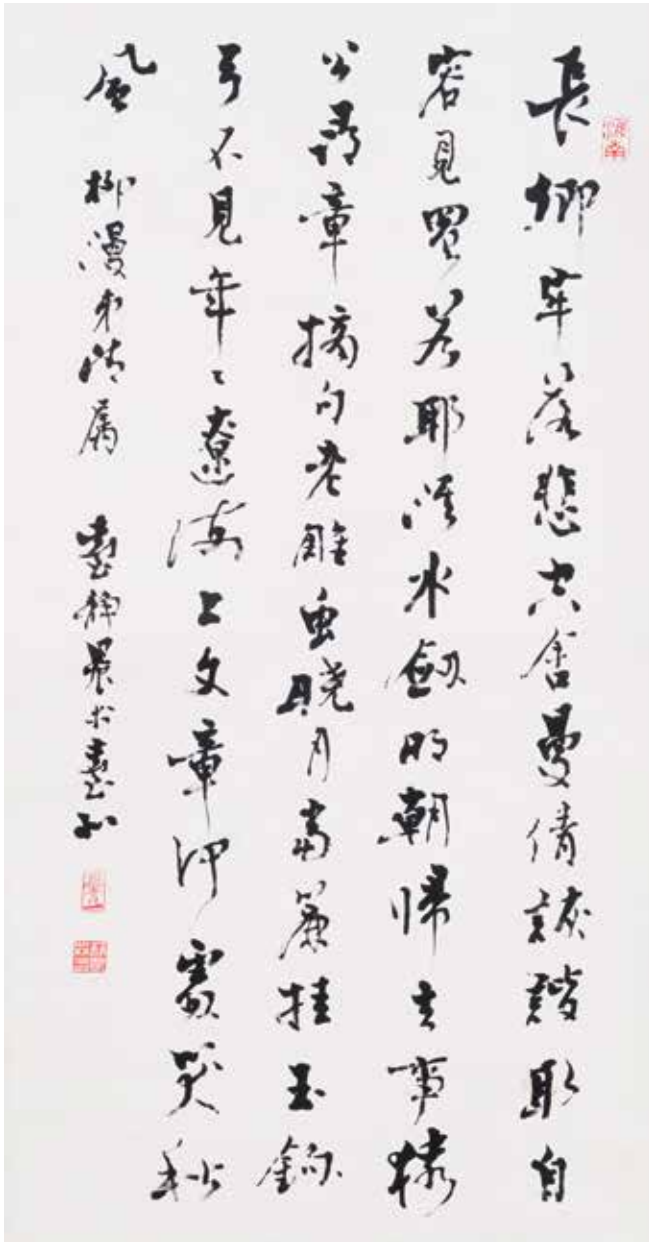 長卿牢落悲空舍曼倩詼諧取自
容見買若耶溪水劍明朝歸去事猿
公尋章摘句老雕虫曉月當簾挂玉鉤
弓不見年々遼海上文章何處哭秋
風 柳漫弟清属 臺靜農於臺北